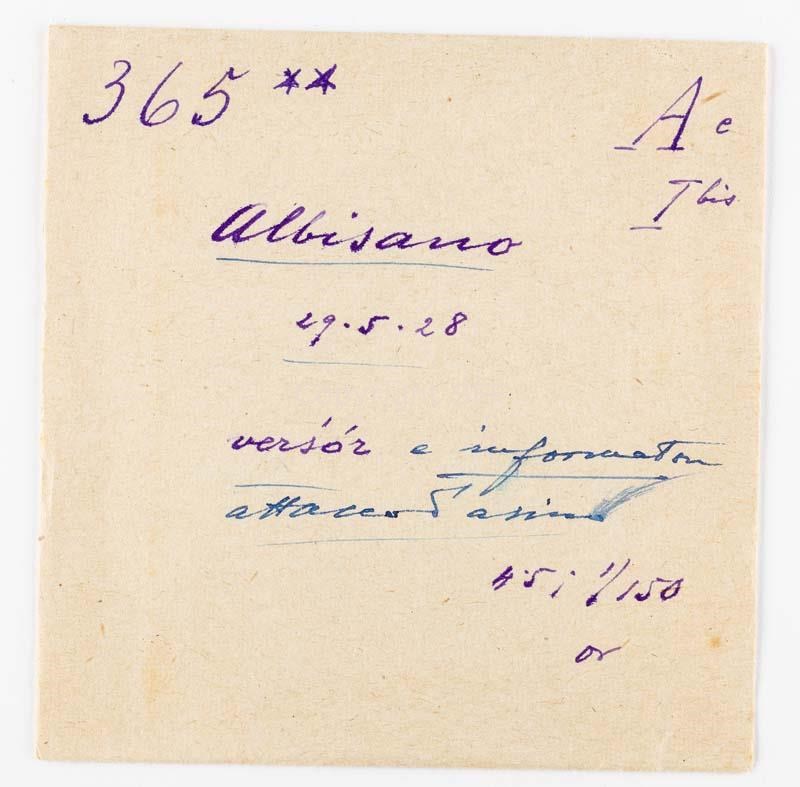 365 **
A e
I bis
Albisano
29.5.28
versór e informatori
attacco d'asino
4.5; 1/150
or